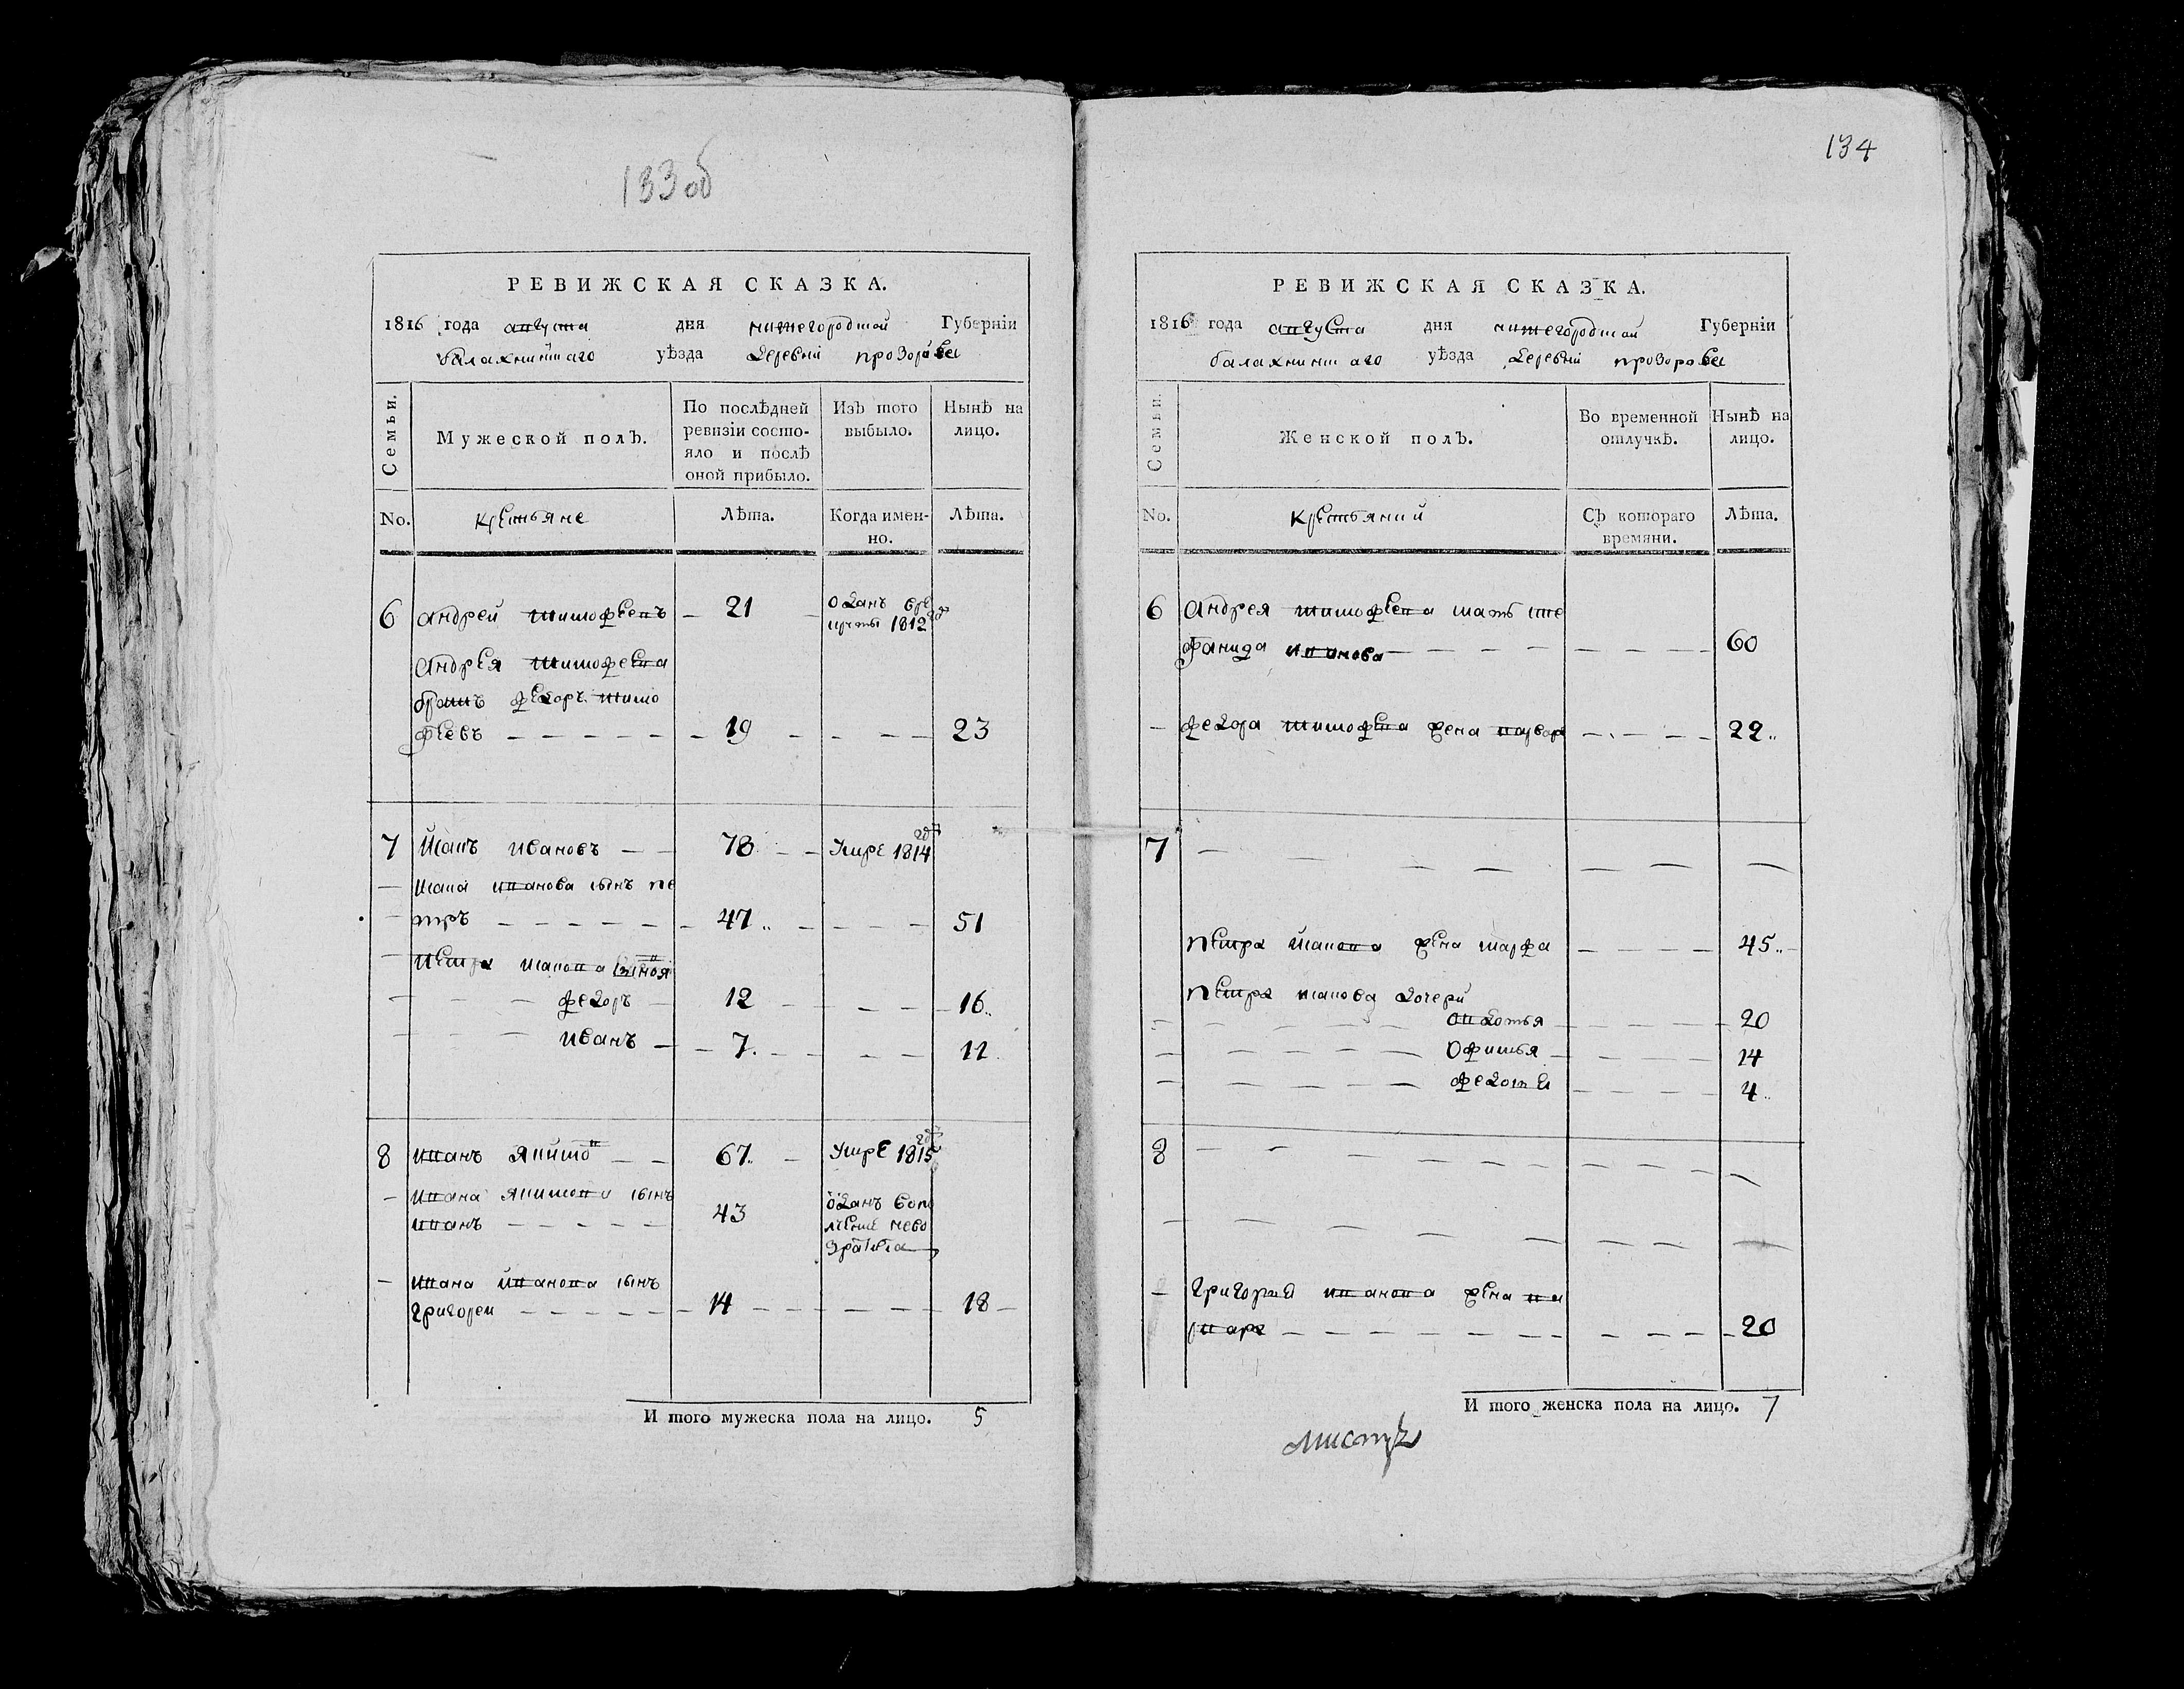 133 об
РЕВИЖСКАЯ СКАЗКА.
1816 года августа дня нижегородской Губерніи
балахнинскаго уѣзда деревни прозоровы
Семьи.
Мужеской полъ.
По послѣдней ревизіи состо-
яло и послѣ
оной прибыло.
Изъ того
выбыло.
Нынѣ на
лицо.
No.
крестьяне
Лѣта.
Когда имен-
но.
Лѣта.
6 андрей тимофеевъ — 21 — отданъ вре
круты 1812 го
андрея тимофеева
братъ федоръ тимо
феевъ — 19 — 23
7 Исакъ ивановъ — 78 — умре 1814 го
Исака иванова сынъ пе
тръ — 47 — 51
петра исакова сыновя
федоръ — 12 — 16
иванъ — 7 — 11
8 иванъ якимов — 67 — умре 1815 го
ивана якимова сынъ
иванъ — 43
отданъ вопо
лчение нево
ивана иванова сынъ
григореи — 14 — 18
И того мужеска пола на лицо. 5
134
РЕВИЖСКАЯ СКАЗКА.
1816 года августа дня нижегородской Губерніи
балахнинскаго уѣзда деревни прозоровы
Семьи.
Женской полъ.
Во временной
отлучкѣ.
Нынѣ на
лицо.
No.
Съ котораго
времяни.
Лѣта.
6 андрея тимофеева мать сте
фанида иванова — 60
— федора тимофеева жена — 22
7
петра исакова жена марфа — 45
петра исакова дочери
авдотья — 20
офимья — 14
федосья — 4
8
— григорья иванова жена ва
рвара — 20
И того женска пола на лицо. 7